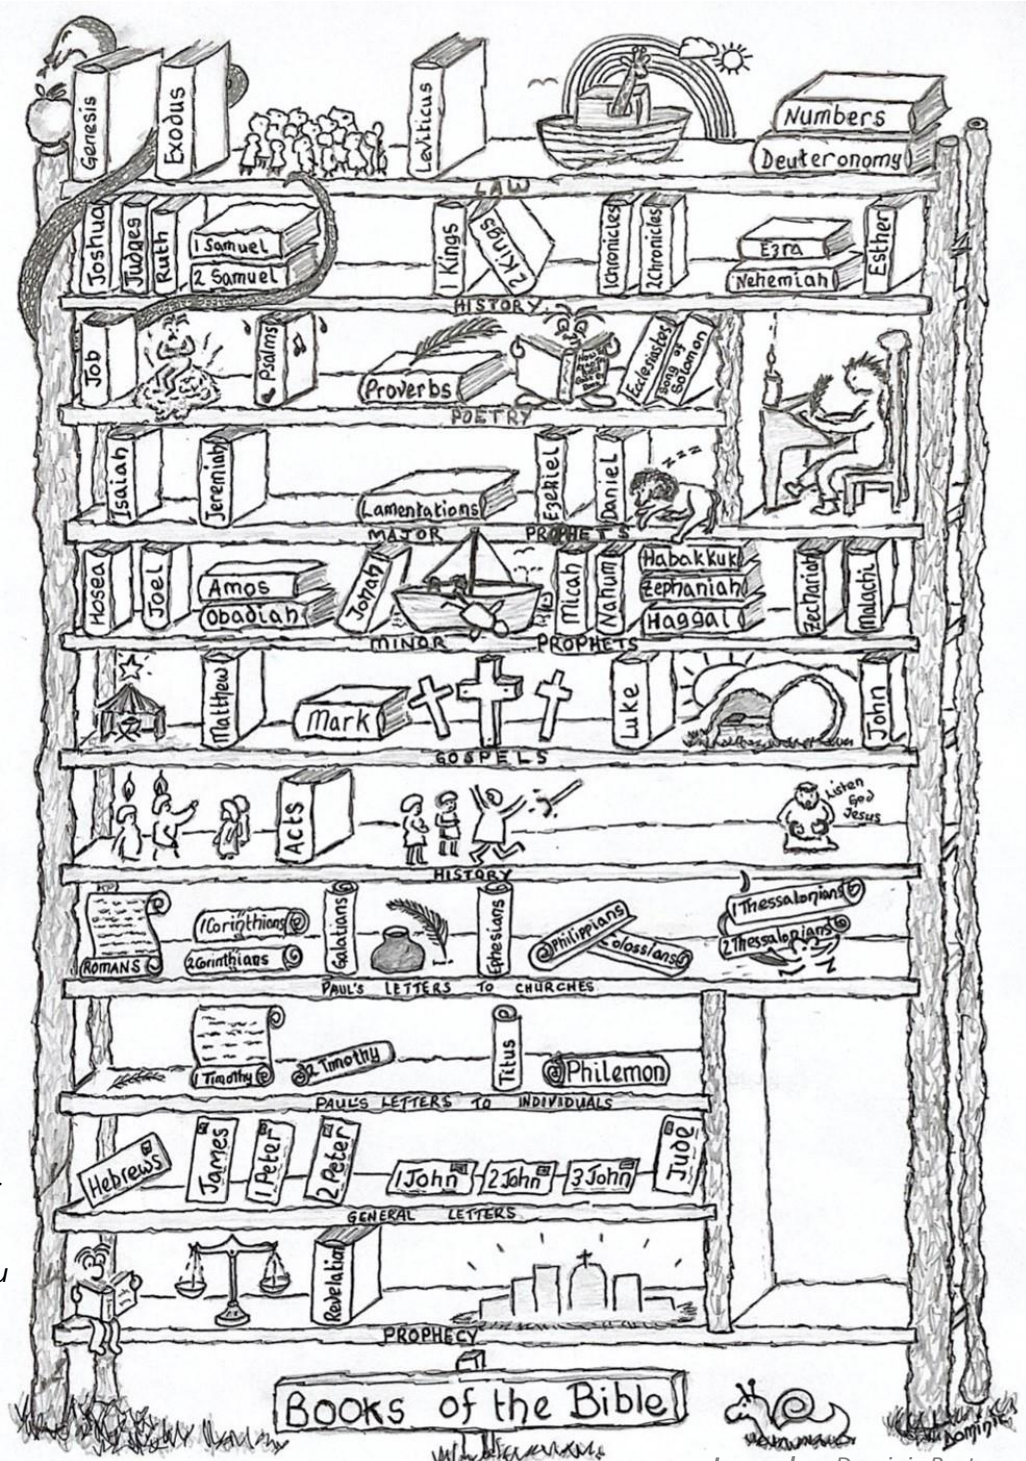 Genesis
Exodus
Leviticus
Numbers
Deuteronomy
LAW
Joshua
Judges
Ruth
1 Samuel
2 Samuel
1 Kings
2 Kings
1 Chronicles
2 Chronicles
Ezra
Nehemiah
Esther
HISTORY
Job
Psalms
Proverbs
Ecclesiastes
Song of Solomon
POETRY
Isaiah
Jeremiah
Lamentations
Ezekiel
Daniel
zzz
MAJOR PROPHETS
Hosea
Joel
Amos
Obadiah
Jonah
Micah
Nahum
Habakkuk
Zephaniah
Haggai
Zechariah
Malachi
MINOR PROPHETS
Matthew
Mark
Luke
John
GOSPELS
Acts
Listen
God
Jesus
HISTORY
ROMANS
1 Corinthians
2 Corinthians
Galatians
Ephesians
Philippians
Colossians
1 Thessalonians
2 Thessalonians
PAUL'S LETTERS TO CHURCHES
1 Timothy
2 Timothy
Titus
Philemon
PAUL'S LETTERS TO INDIVIDUALS
Hebrews
James
1 Peter
2 Peter
1 John
2 John
3 John
Jude
GENERAL LETTERS
Revelation
PROPHECY
Books of the Bible
DOMINIC